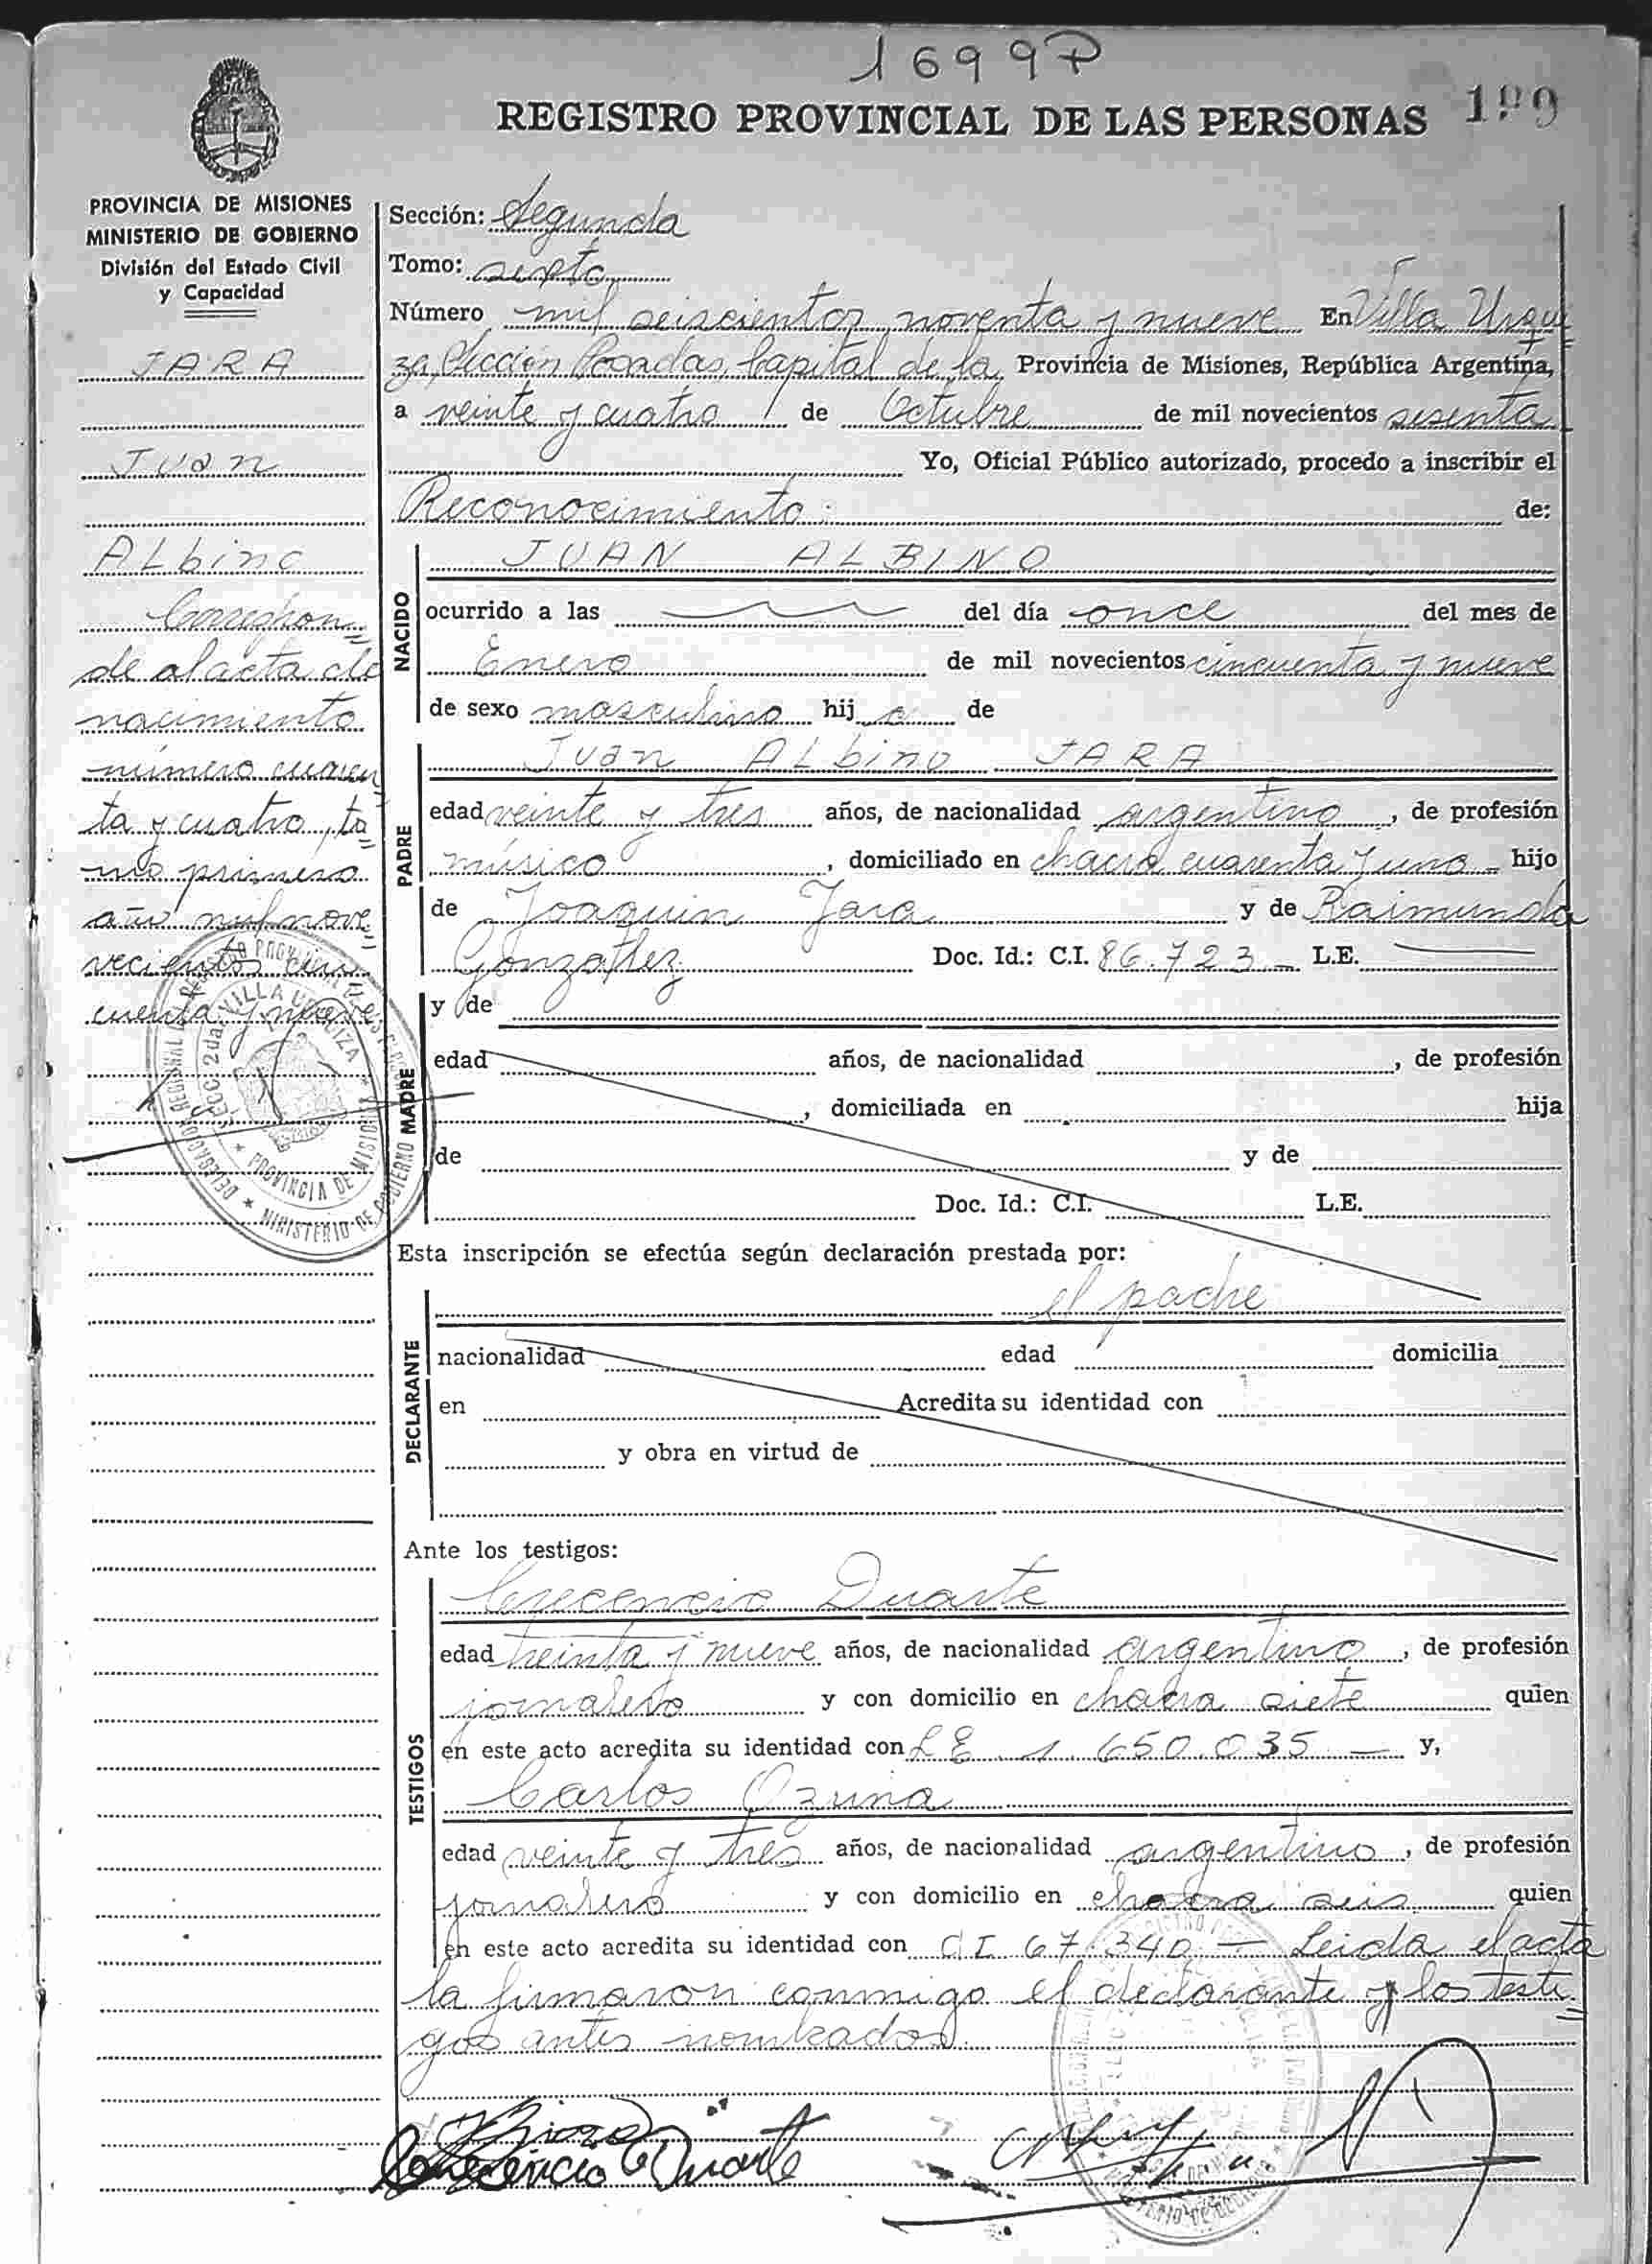 1699 P
REGISTRO PROVINCIAL DE LAS PERSONAS 199
PROVINCIA DE MISIONES
MINISTERIO DE GOBIERNO
División del Estado Civil
y Capacidad
JARA
Juan
Albino
Correspon=
de al acta de
nacimiento
número cuaren=
ta y cuatro, to=
mo primero
año mil nove=
vecientos cin=
cuenta y nueve
Sección: Segunda
Tomo: sexto
Número mil seiscientos noventa y nueve En Villa Urqui=
za, Sección Posadas, Capital de la Provincia de Misiones, República Argentina,
a veinte y cuatro de Octubre de mil novecientos sesenta
Yo, Oficial Público autorizado, procedo a inscribir el
Reconocimiento de:
NACIDO
JUAN ALBINO
ocurrido a las del día once del mes de
Enero de mil novecientos cincuenta y nueve
de sexo masculino hijo de
PADRE
Juan Albino JARA
edad veinte y tres años, de nacionalidad argentino, de profesión
músico, domiciliado en chacra cuarenta y uno - hijo
de Joaquin Jara y de Raimunda
Gonzalez Doc. Id.: C.I. 86.723 - L.E.
MADRE
y de
edad años, de nacionalidad , de profesión
, domiciliada en hija
de y de
Doc. Id.: C.I. L.E.
Esta inscripción se efectúa según declaración prestada por:
el padre
DECLARANTE
nacionalidad edad domicilia
en Acredita su identidad con
y obra en virtud de
Ante los testigos:
TESTIGOS
Crecencio Duarte
edad treinta y nueve años, de nacionalidad argentino, de profesión
jornalero y con domicilio en chacra siete quien
en este acto acredita su identidad con LE 1.650.035 - y,
Carlos Ozuna
edad veinte y tres años, de nacionalidad argentino, de profesión
jornalero y con domicilio en chacra seis quien
en este acto acredita su identidad con CI 67.340 - Leida el acta
la firmaron conmigo el declarante y los testi=
gos antes nombrados.
Crecencio Duarte
DELEGACION REGIONAL REGISTRO PROVINCIAL DE LAS PERSONAS
SECC. 2da. VILLA URQUIZA
PROVINCIA DE MISIONES
MINISTERIO DE GOBIERNO